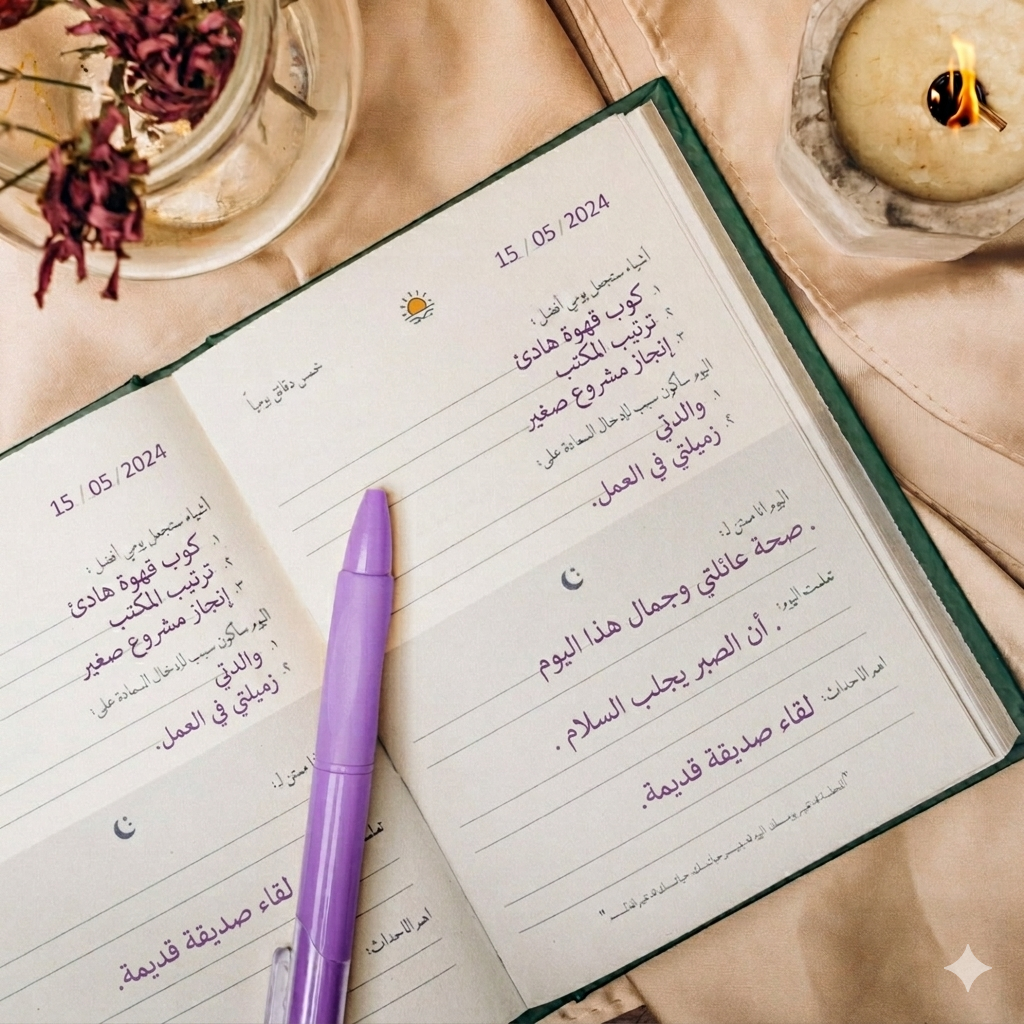 15 / 05 / 2024
أشياء ستجعل يومي أفضل :
١. كوب قهوة هادئ
٢. ترتيب المكتب
٣. إنجاز مشروع صغير
اليوم سأكون سبب لإدخال السعادة على:
١. والدتي
٢. زميلتي في العمل.
خمس دقائق يومياً
اليوم انا ممتن لـ:
. صحة عائلتي وجمال هذا اليوم
تعلمت اليوم:
. أن الصبر يجلب السلام .
اهم الاحداث:
لقاء صديقة قديمة.
15 / 05 / 2024
أشياء ستجعل يومي أفضل :
١. كوب قهوة هادئ
٢. ترتيب المكتب
٣. إنجاز مشروع صغير
اليوم سأكون سبب لإدخال السعادة على:
١. والدتي
٢. زميلتي في العمل.
ممتن لـ:
اهم الاحداث:
لقاء صديقة قديمة.